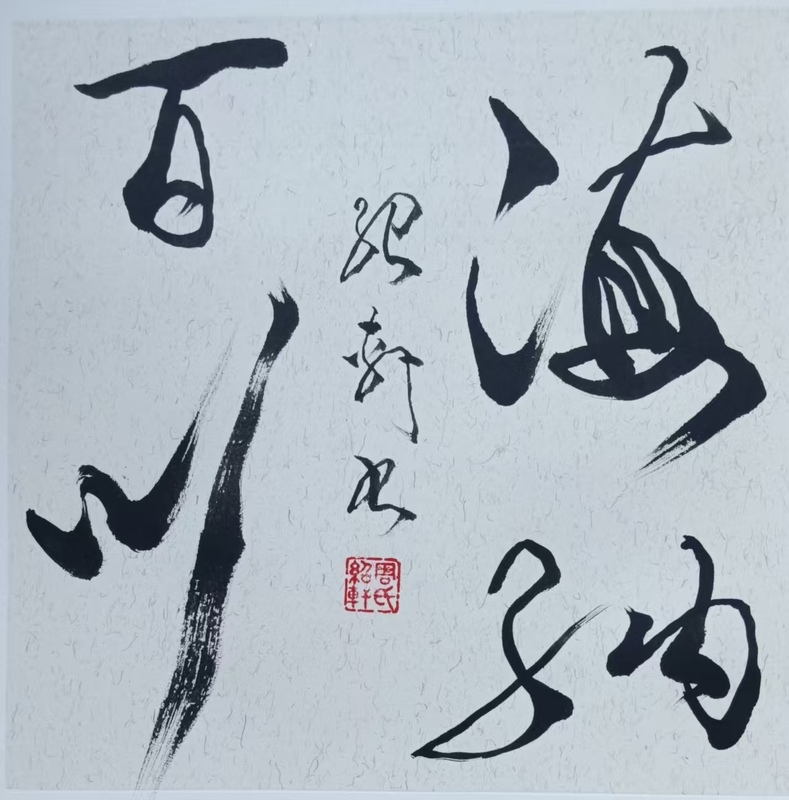 海纳
百川
绍轩书
周氏紹軒